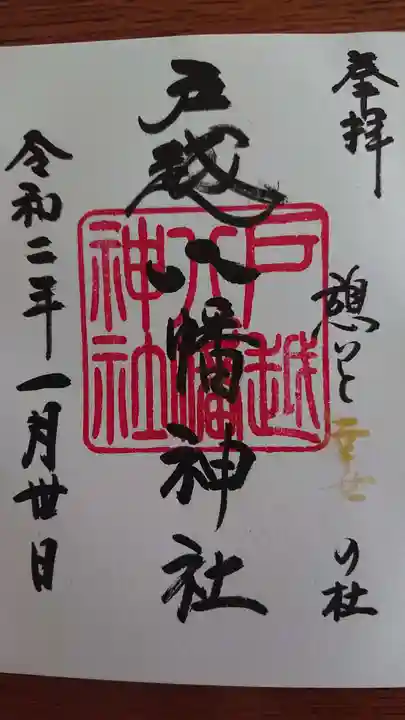 奉拝
憩いと幸せの杜
戸越八幡神社
戸越
八幡
神社
令和二年一月廿日